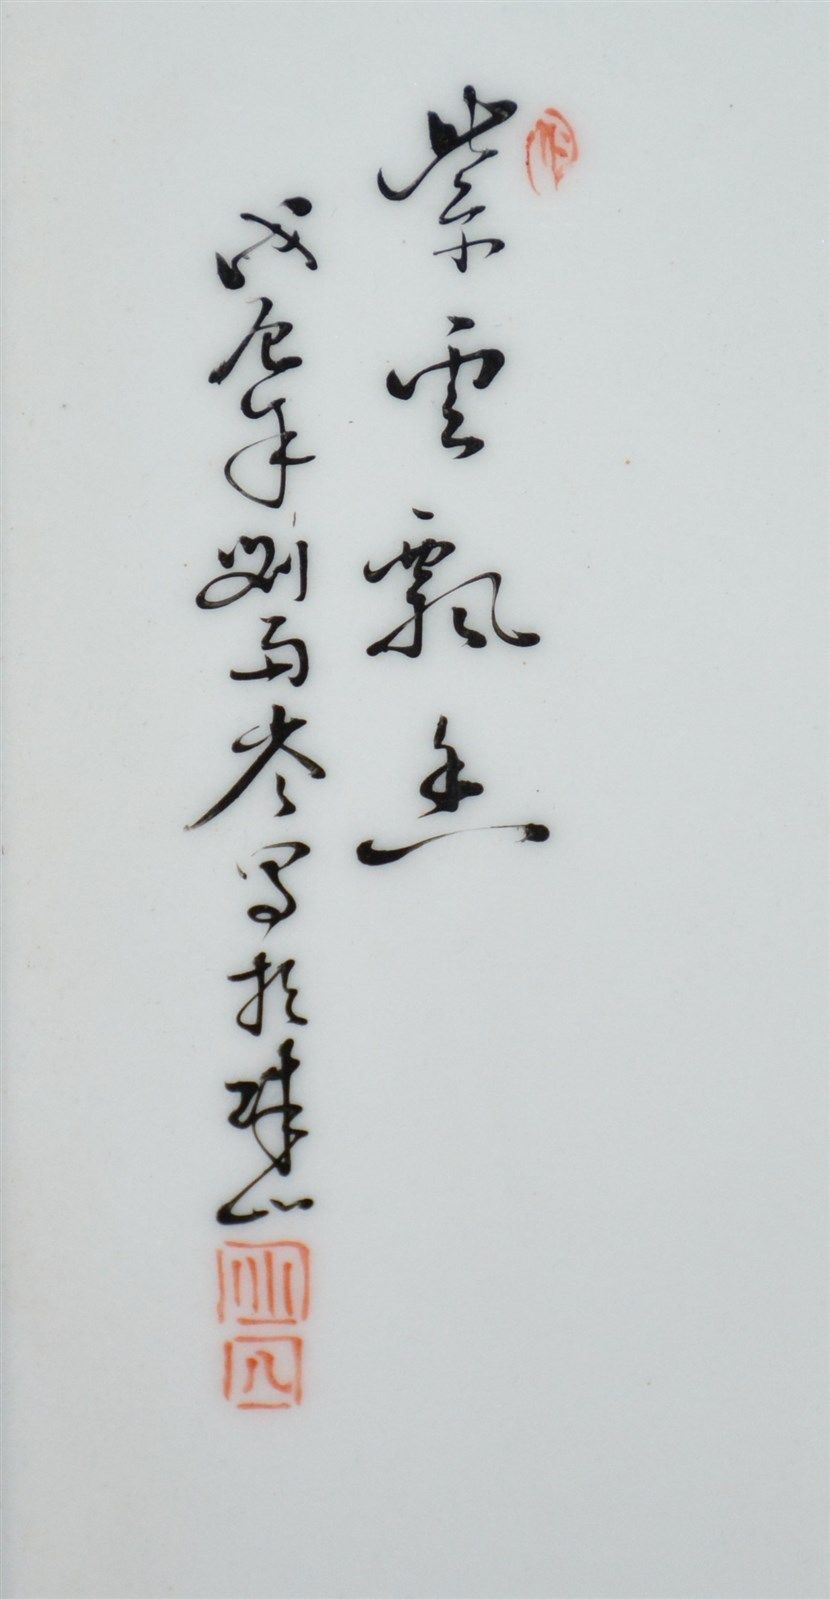 紫雲飄香
戊辰年劉雨岑寫於珠山